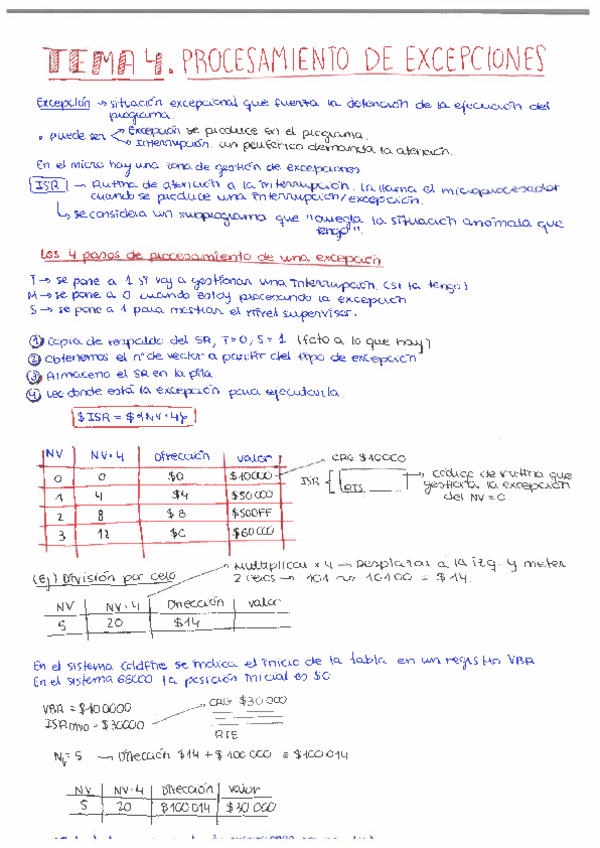 TEMA 4. PROCESAMIENTO DE EXCEPCIONES
Excepción → situación excepcional que fuerza la detención de la ejecución del
programa.
• Puede ser
Excepción se produce en el programa.
Interrupción un periférico demanda la atención.
En el micro hay una zona de gestión de excepciones
ISR → Rutina de atención a la interrupción. La llama el microprocesador
cuando se produce una interrupción/excepción.
↳ se considera un subprograma que "arregla la situación anómala que
tengo".
Los 4 pasos de procesamiento de una excepción
T → se pone a 1 si voy a gestionar una interrupción. (si la tengo)
M → se pone a 0 cuando estoy procesando la excepción
S → se pone a 1 para mostrar el nivel supervisor.
① Copia de respaldo del SR, T=0, S=1 (foto a lo que hay)
② Obtenemos el nº de vector a partir del tipo de excepción
③ Almaceno el SR en la pila
④ Leo donde está la excepción para ejecutarla.
$ISR = $(NV·4)
NV NV·4 Dirección valor
0 0 $0 $10000
1 4 $4 $50000
2 8 $8 $500FF
3 12 $C $60000
ORG $10000
ISR
código de rutina que
gestiona la excepción
del NV=0.
(Ej) División por cero
Multiplicar × 4 → Desplazar a la izq. y meter
2 ceros → 101 → 10100 = $14.
NV NV·4 Dirección valor
5 20 $14
En el sistema Coldfire se indica el inicio de la tabla en un registro VBR
En el sistema 68000 la posición inicial es $0
VBR = $100000
= $30000
ORG $30000
RTE
Nv = 5 → Dirección $14 + $100000 = $100014
NV NV·4 Dirección valor
5 20 $100014 $30000